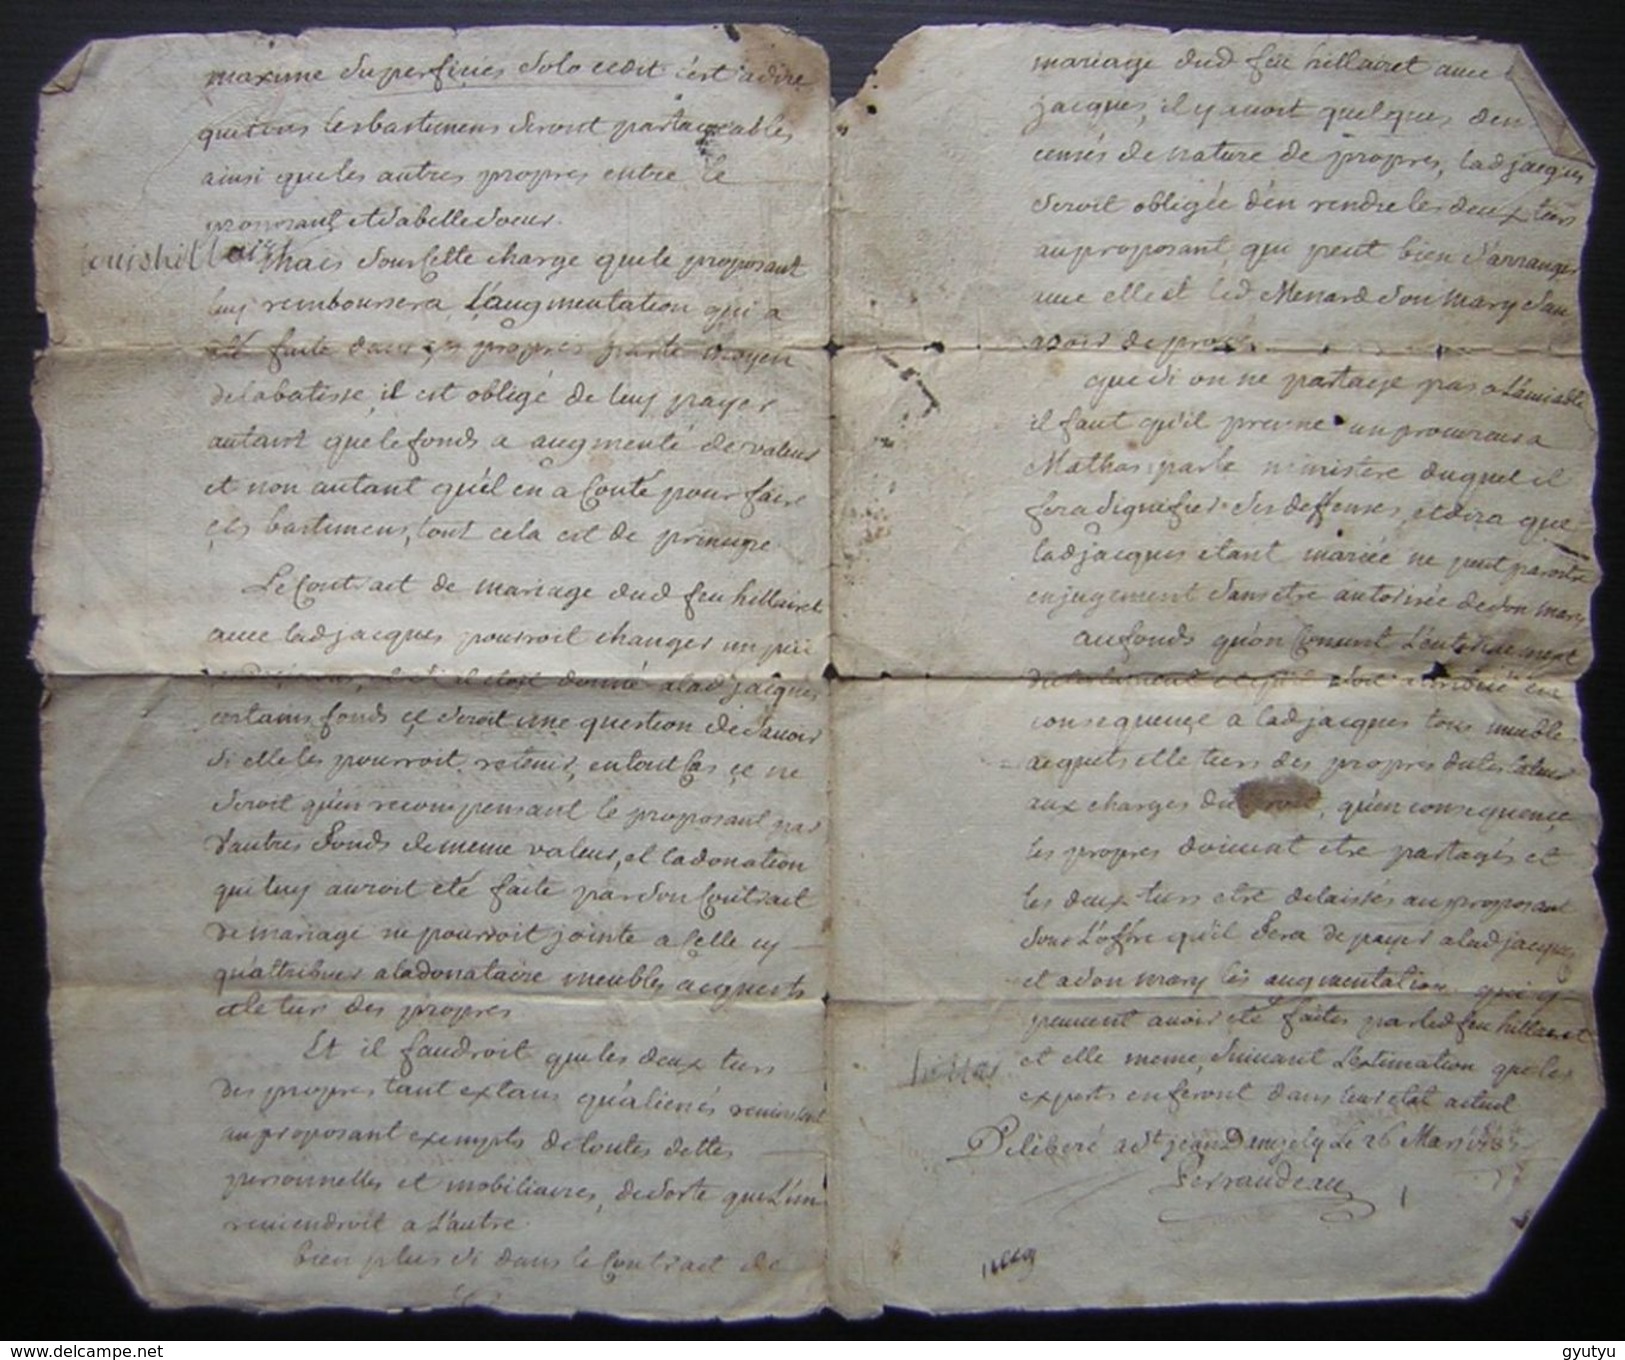 maxime superficies solo cedit c'est adire
que tous les bastimens seront partageables
ainsi que les autres propres entre le
proposant et sa belle soeur.
louis hillair
Mais sous cette charge que le proposant
luy remboursera l'augmentation qui a
été faite dans ces propres par le moyen
de la batisse, il est obligé de luy payer
autant que le fonds a augmenté de valeur
et non autant qu'el en a couté pour faire
ces bastimens, tout cela est de principe
Le Contrait de mariage dud feu hillairet
avec ladjacques pourroit changer un peu
donné aladjacques
certains fonds ce seroit une question de savoir
si elle les pourroit retenir, en tout cas ce ne
seroit qu'en recompensant le proposant par
d'autres fonds de meme valeur, et la donation
qui luy auroit été faite par son Contrait
de mariage ne pourroit jointe a celle cy
qu'attribuer a la donataire meubles acquests
et le tiers des propres
Et il faudroit que les deux tiers
des propres tant extans qu'alienés
au proposant exempts de toutes dettes
personnelles et mobiliaires, de sorte que l'un
reviendroit a l'autre.
bien plus si dans le Contrait de
mariage dud feu hillairet avec
jacques, il y avoit quelques
de nature de propres, ladjacques
seroit obligée d'en rendre les deux tiers
au proposant, qui peut bien s'arranger
avec elle et led Menard son mary sans
avoir de procès.
que si on ne partage pas a l'amiable
il faut qu'il prenne un procureur a
Mathas par le ministere duquel il
fera signifier ses deffenses, et dira que
ladjacques etant mariée ne peut paroitre
en jugement sans etre autorisée de son mary
au fonds qu'on consent l'enterinement
du testament et qu'il soit en
consequence a ladjacques tous meubles
acquets et le tiers des propres du testateur
aux charges du droit, qu'en consequence
les propres doivent etre partagés et
les deux tiers etre delaissés au proposant
sous l'offre qu'il fera de payer a ladjacques
et a son mary les augmentation qui y
peuvent avoir eté faites par led feu hillairet
et elle meme, suivant l'extimation que les
experts en feront dans leur etat actuel
Deliberé a St jean Dangely le 26 Mars
Perraudeau